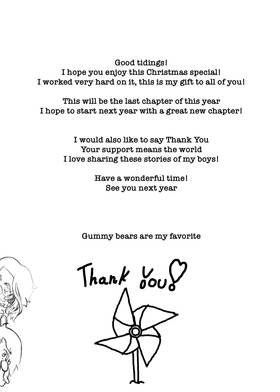 Good tidings!
I hope you enjoy this Christmas special!
I worked very hard on it, this is my gift to all of you!
This will be the last chapter of this year
I hope to start next year with a great new chapter!
I would also like to say Thank You
Your support means the world
I love sharing these stories of my boys!
Have a wonderful time!
See you next year
Gummy bears are my favorite
Thank you!